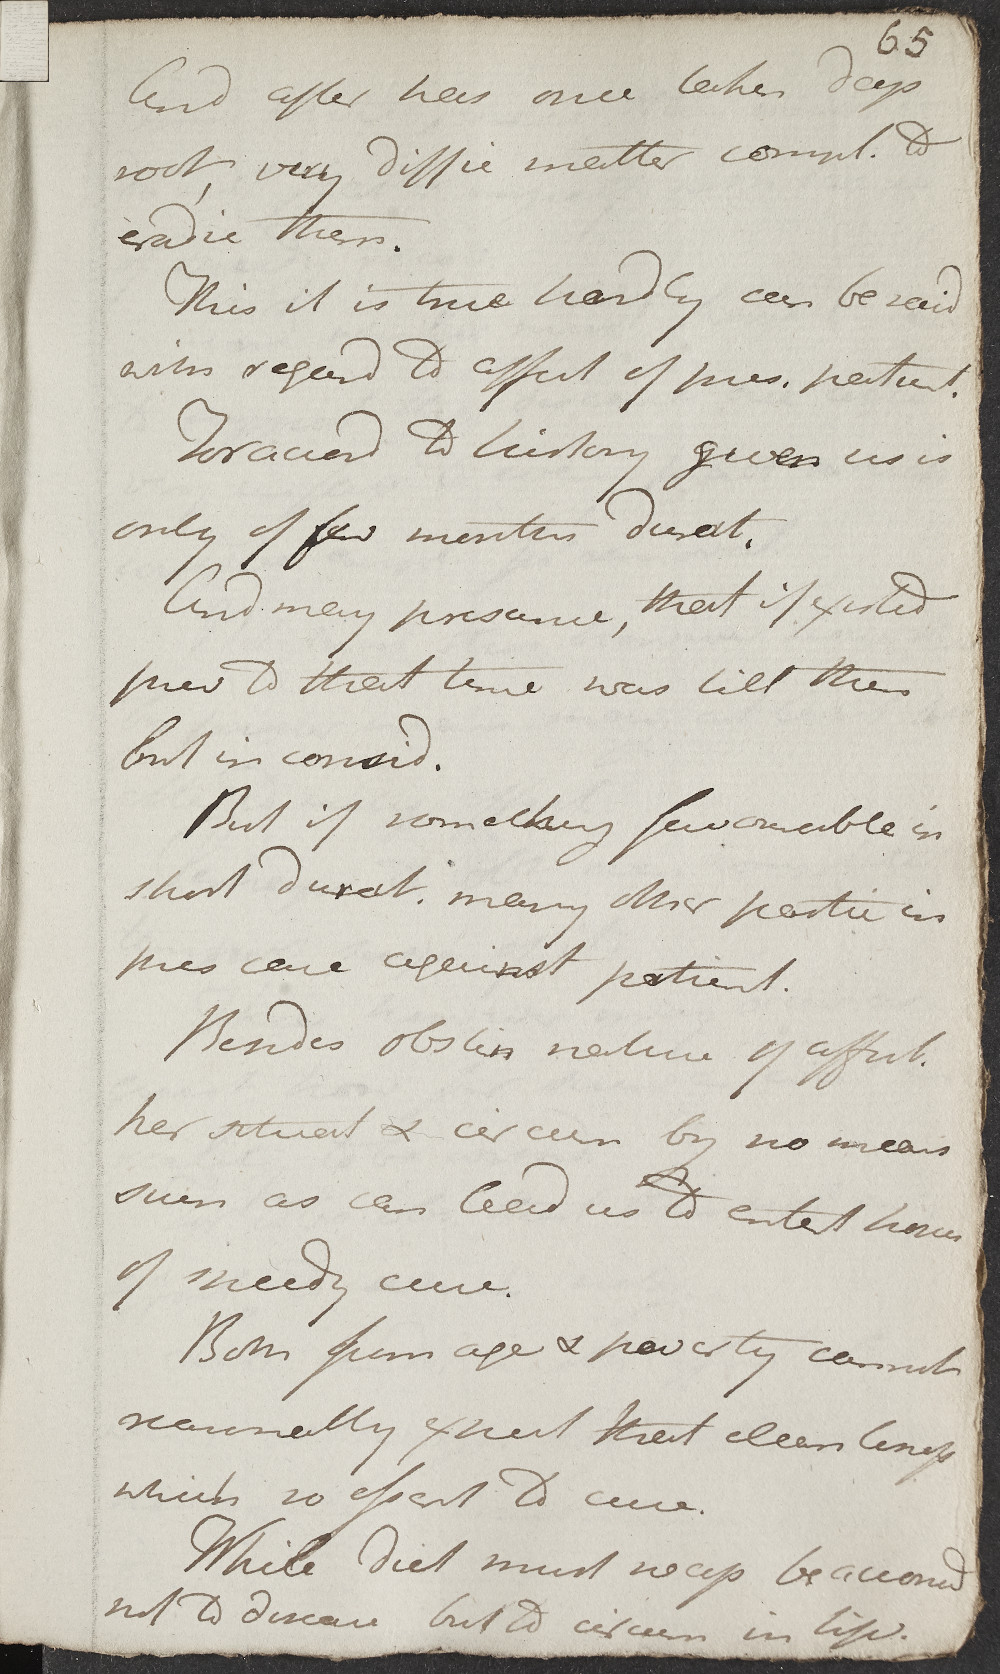 65
And after has once taken deep
root, very diffic matter compl. to
eradic them.
This it is true hardly can be said
with regard to affect of pres. patient.
For accord to history given us is
only of few months durat.
And may presume, that if existed
prev to that time was till then
but in consid.
But if something favourable in
short durat. many other partic in
pres case against patient.
Besides obstin nature of affect.
her situat & circum by no means
such as can lead us to entert hopes
of speedy cure.
Both from age & poverty cannot
reasonably expect that cleanliness
which so essent to cure.
While diet must necess be accomd
not to disease but to circum in life.